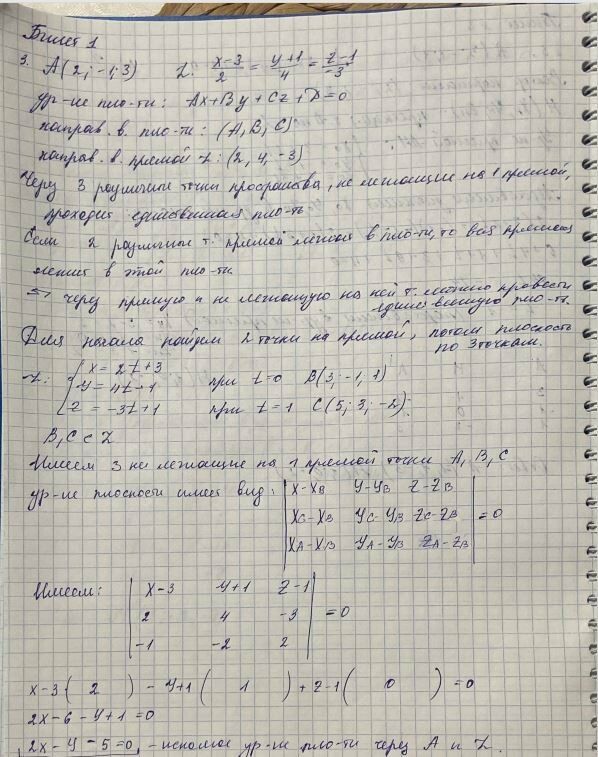 Билет 1
3. A(2; -1; 3) L: (x-3)/2 = (y+1)/4 = (z-1)/-3
ур-ие пло-ти: Ax+By+Cz+D=0
направ. в. пло-ти: (A, B, C)
направ. в. прямой L: (2, 4, -3)
Через 3 различные точки пространства, не лежащие на 1 прямой,
проходит единственная пло-ть
Если 2 различные т. прямой лежат в пло-ти, то вся прямая
лежит в этой пло-ти.
=> через прямую и не лежащую на ней т. можно провести
единственную пло-ть.
Для начала найдем 2 точки на прямой, потом плоскость
по 3 точкам.
L: { x = 2t+3
y = 4t-1 при t=0 B(3; -1; 1)
z = -3t+1 при t=1 C(5; 3; -2)
B, C ∈ L
Имеем 3 не лежащие на 1 прямой точки A, B, C
ур-ие плоскости имеет вид: | x-xB y-yB z-zB |
| xC-xB yC-yB zC-zB | = 0
| xA-xB yA-yB zA-zB |
Имеем: | x-3 y+1 z-1 |
| 2 4 -3 | = 0
| -1 -2 2 |
x-3( 2 ) - y+1( 1 ) + z-1( 0 ) = 0
2x-6-y+1=0
2x-y-5=0 - искомое ур-ие пло-ти через A и L.